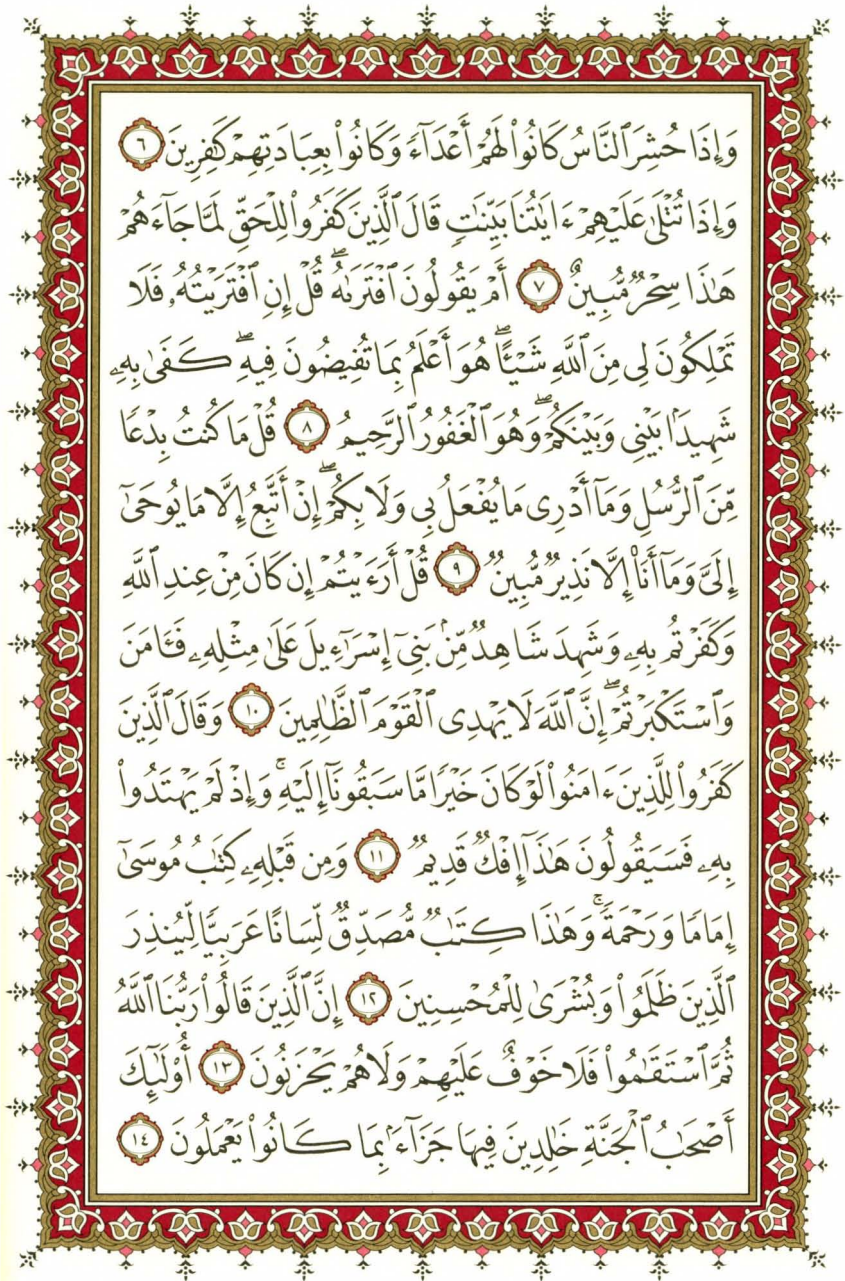 وَإِذَا حُشِرَ ٱلنَّاسُ كَانُوا۟ لَهُمْ أَعْدَآءً وَكَانُوا۟ بِعِبَادَتِهِمْ كَٰفِرِينَ ٦
وَإِذَا تُتْلَىٰ عَلَيْهِمْ ءَايَٰتُنَا بَيِّنَٰتٍ قَالَ ٱلَّذِينَ كَفَرُوا۟ لِلْحَقِّ لَمَّا جَآءَهُمْ
هَٰذَا سِحْرٌ مُّبِينٌ ٧ أَمْ يَقُولُونَ ٱفْتَرَىٰهُ ۖ قُلْ إِنِ ٱفْتَرَيْتُهُۥ فَلَا
تَمْلِكُونَ لِى مِنَ ٱللَّهِ شَيْـًٔا ۖ هُوَ أَعْلَمُ بِمَا تُفِيضُونَ فِيهِ ۖ كَفَىٰ بِهِۦ
شَهِيدًۢا بَيْنِى وَبَيْنَكُمْ ۖ وَهُوَ ٱلْغَفُورُ ٱلرَّحِيمُ ٨ قُلْ مَا كُنتُ بِدْعًا
مِّنَ ٱلرُّسُلِ وَمَآ أَدْرِى مَا يُفْعَلُ بِى وَلَا بِكُمْ ۖ إِنْ أَتَّبِعُ إِلَّا مَا يُوحَىٰٓ
إِلَىَّ وَمَآ أَنَا۠ إِلَّا نَذِيرٌ مُّبِينٌ ٩ قُلْ أَرَءَيْتُمْ إِن كَانَ مِنْ عِندِ ٱللَّهِ
وَكَفَرْتُم بِهِۦ وَشَهِدَ شَاهِدٌ مِّنۢ بَنِىٓ إِسْرَٰٓءِيلَ عَلَىٰ مِثْلِهِۦ فَـَٔامَنَ
وَٱسْتَكْبَرْتُمْ ۖ إِنَّ ٱللَّهَ لَا يَهْدِى ٱلْقَوْمَ ٱلظَّٰلِمِينَ ١٠ وَقَالَ ٱلَّذِينَ
كَفَرُوا۟ لِلَّذِينَ ءَامَنُوا۟ لَوْ كَانَ خَيْرًا مَّا سَبَقُونَآ إِلَيْهِ ۚ وَإِذْ لَمْ يَهْتَدُوا۟
بِهِۦ فَسَيَقُولُونَ هَٰذَآ إِفْكٌ قَدِيمٌ ١١ وَمِن قَبْلِهِۦ كِتَٰبُ مُوسَىٰٓ
إِمَامًا وَرَحْمَةً ۚ وَهَٰذَا كِتَٰبٌ مُّصَدِّقٌ لِّسَانًا عَرَبِيًّا لِّيُنذِرَ
ٱلَّذِينَ ظَلَمُوا۟ وَبُشْرَىٰ لِلْمُحْسِنِينَ ١٢ إِنَّ ٱلَّذِينَ قَالُوا۟ رَبُّنَا ٱللَّهُ
ثُمَّ ٱسْتَقَٰمُوا۟ فَلَا خَوْفٌ عَلَيْهِمْ وَلَا هُمْ يَحْزَنُونَ ١٣ أُو۟لَٰٓئِكَ
أَصْحَٰبُ ٱلْجَنَّةِ خَٰلِدِينَ فِيهَا جَزَآءًۢ بِمَا كَانُوا۟ يَعْمَلُونَ ١٤